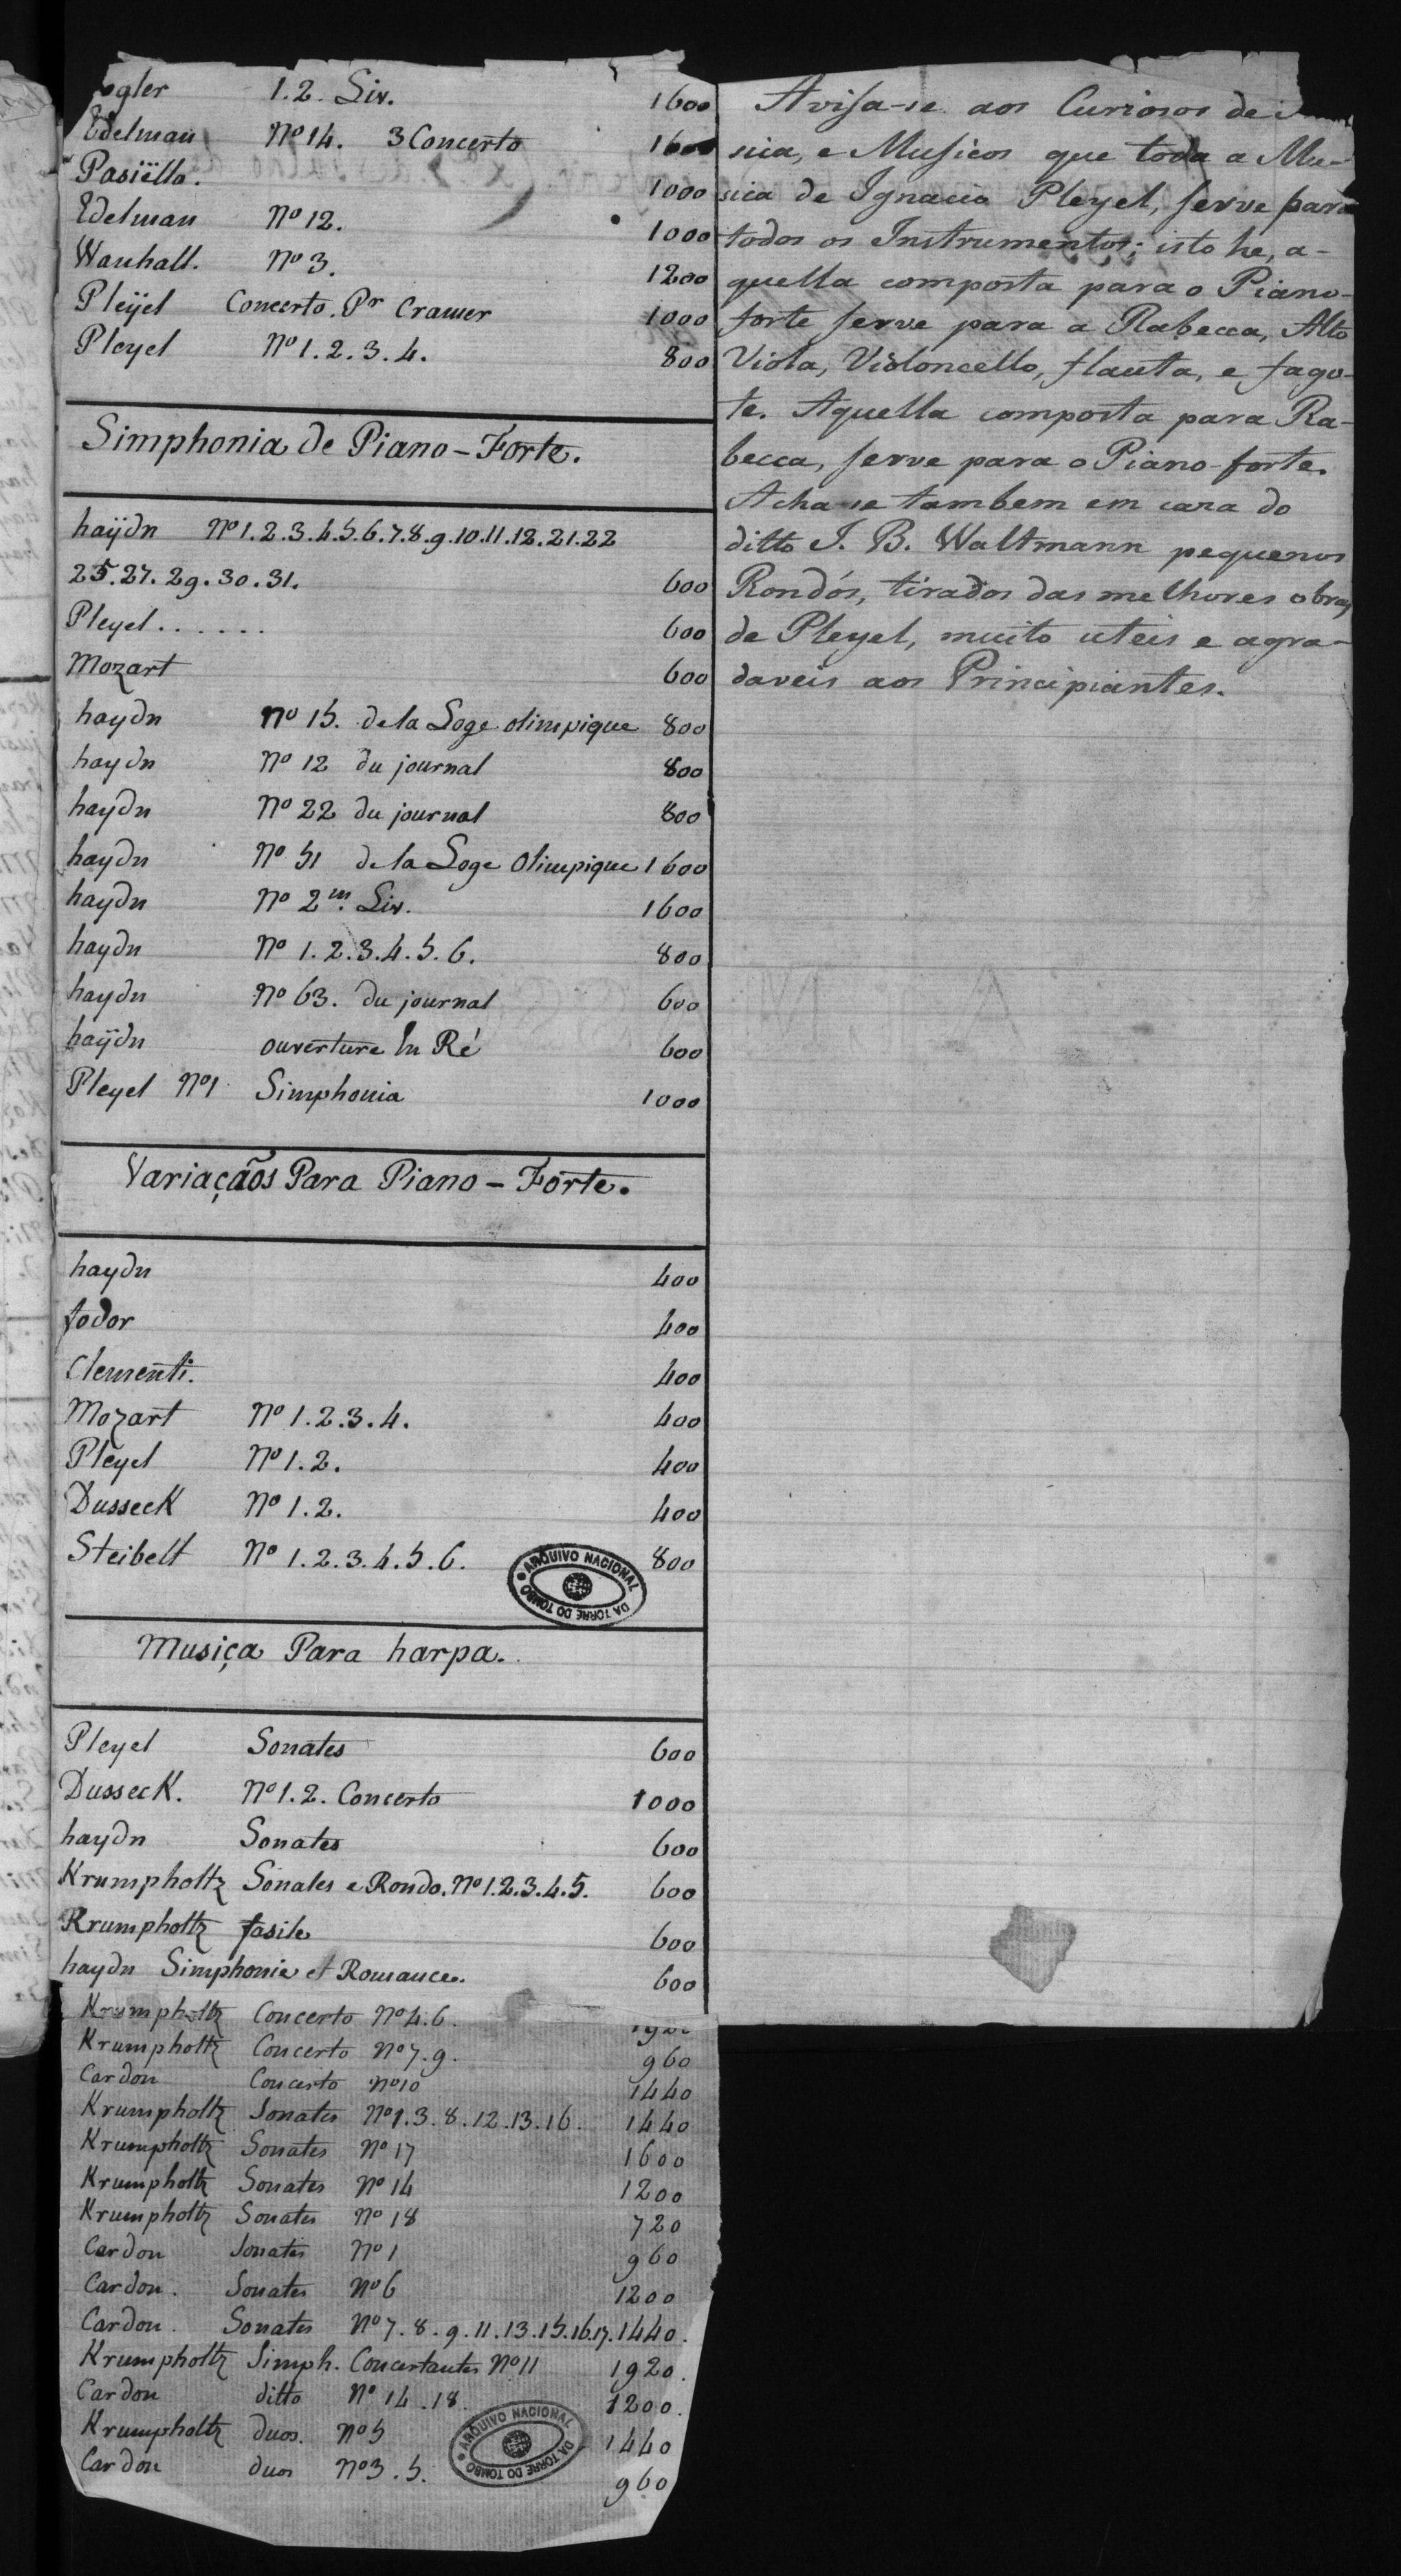 ogler 1.2. Liv. 1600
Edelman Nº 14. 3 Concerto 1600
Pasiëllo. 1000
Edelman Nº 12. 1000
Wanhall. Nº 3. 1200
Pleÿel Concerto. Pr Cramer 1000
Pleyel Nº 1.2.3.4. 800
Simphonia de Piano-Forte.
haÿdn Nº 1.2.3.4.5.6.7.8.9.10.11.12.21.22
25.27.29.30.31. 600
Pleyel...... 600
Mozart 600
haydn nº 15. de la Loge olimpique 800
haydn Nº 12 du journal 800
haydn Nº 22 du journal 800
haydn Nº 51 de la Loge Olimpique 1600
haydn Nº 2m. Liv. 1600
haydn Nº 1.2.3.4.5.6. 800
haydn Nº 63. du journal 600
haÿdn ouverture In Ré 600
Pleyel Nº 1 Simphonia 1000
Variaçãos Para Piano-Forte.
haydn 400
fodor 400
Clementi. 400
Mozart Nº 1.2.3.4. 400
Pleyel Nº 1.2. 400
Dusseck Nº 1.2. 400
Steibelt Nº 1.2.3.4.5.6. 800
ARQUIVO NACIONAL DA TORRE DO TOMBO
Musiça Para harpa.
Pleyel Sonates 600
Dusseck. Nº 1.2. Concerto 1000
haydn Sonates 600
Krumpholtz Sonates e Rondo. Nº 1.2.3.4.5. 600
Krumpholtz fasile 600
haydn Simphonie et Romance. 600
Krumpholtz Concerto Nº 4.6.
Krumpholtz Concerto Nº 7.9. 960
Cardon Concerto nº 10 1440
Krumpholtz Sonates Nº 1.3.8.12.13.16. 1440
Krumpholtz Sonates Nº 17 1600
Krumpholtz Sonates Nº 14 1200
Krumpholtz Sonates Nº 18 720
Cardon Sonates Nº 1 960
Cardon. Sonates Nº 6 1200
Cardon. Sonates Nº 7.8.9.11.13.15.16.17. 1440.
Krumpholtz Simph. Concertantes Nº 11 1920.
Cardon ditto Nº 14.18. 1200.
Krumpholtz duos. Nº 5 1440
Cardon duos Nº 3.5. 960
ARQUIVO NACIONAL DA TORRE DO TOMBO
Avisa-se aos Curiosos de
sica, e Musicos que toda a Mu-
sica de Ignacio Pleyel, serve para
todos os Instrumentos; isto he, a-
quella composta para o Piano-
forte serve para a Rabecca, Alto
Viola, Violoncello, flauta, e fago-
te. Aquella composta para Ra-
becca, serve para o Piano-forte.
Acha-se tambem em caza do
ditto J. B. Waltmann pequenos
Rondós, tirados das melhores obras
de Pleyel, muito uteis e agra-
daveis aos Principiantes.